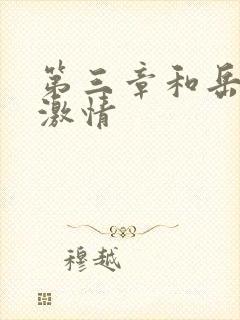 第三章和岳
激情
穆越